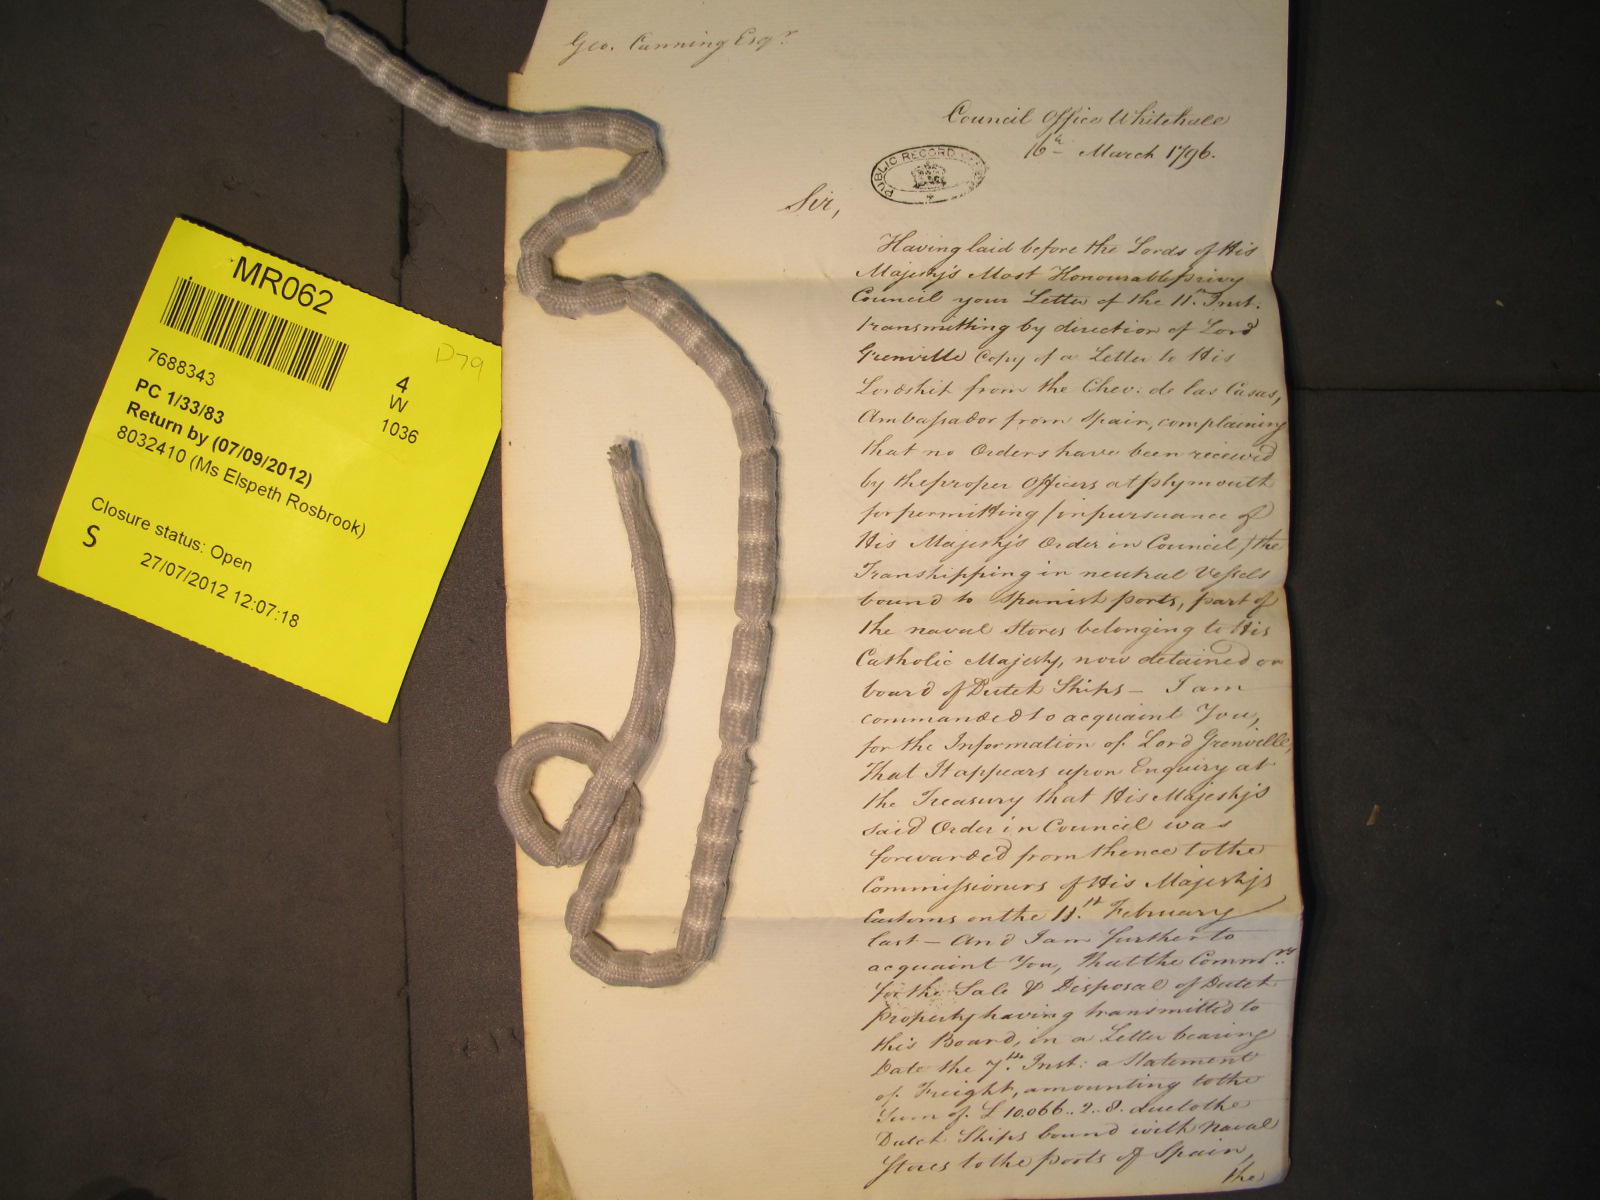 Geo. Canning Esqr.
Council Office Whitehall
16th March 1796.
PUBLIC RECORD OFFICE
Sir,
Having laid before the Lords of His
Majesty's Most Honourable Privy
Council your Letter of the 11th Inst:
transmitting by direction of Lord
Grenville Copy of a Letter to His
Lordship from the Chev: de las Casas,
Ambassador from Spain, complaining
that no Orders have been received
by the proper Officers at Plymouth
for permitting /in pursuance of
His Majesty's Order in Council/ the
Transhipping in neutral Vessels
bound to Spanish ports, part of
the naval Stores belonging to His
Catholic Majesty, now detained on
board of Dutch Ships — I am
commanded to acquaint You,
for the Information of Lord Grenville,
that It appears upon Enquiry at
the Treasury that His Majesty's
said Order in Council was
forwarded from thence to the
Commissioners of His Majesty's
Customs on the 11th February
last — And I am further to
acquaint You, that the Commrs.
for the Sale & Disposal of Dutch
Property having transmitted to
this Board, in a Letter bearing
Date the 7th Inst: a Statement
of Freight, amounting to the
Sum of £10.066..2..8. due to the
Dutch Ships bound with Naval
Stores to the ports of Spain,
the
MR062
D79
7688343
4
W
1036
PC 1/33/83
Return by (07/09/2012)
8032410 (Ms Elspeth Rosbrook)
Closure status: Open
S
27/07/2012 12:07:18